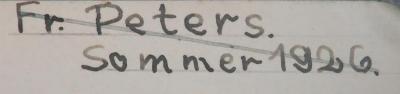 Fr. Peters.
Sommer 1926.